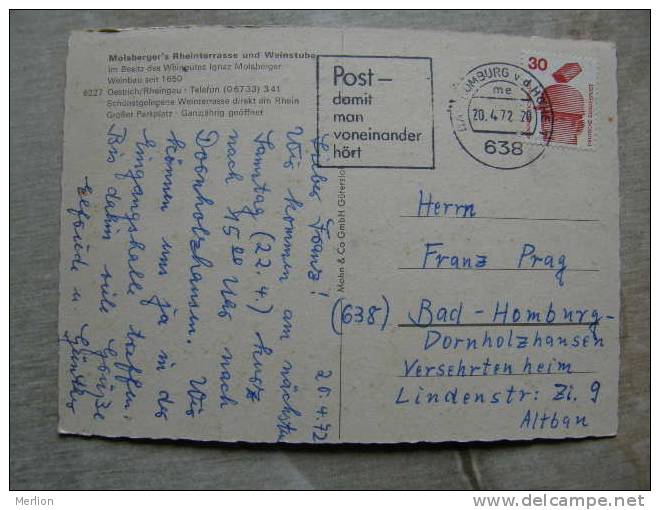 Molsberger's Rheinterrasse und Weinstube
Im Besitz des Weingutes Ignaz Molsberger
Weinbau seit 1650
6227 Oestrich/Rheingau · Telefon (06733) 341
Schönstgelegene Weinterrasse direkt am Rhein
Großer Parkplatz · Ganzjährig geöffnet
Post –
damit
man
voneinander
hört
BAD HOMBURG v.d. HÖHE
me
20.4.72 20
638
30
Mohn & Co GmbH Gütersloh
20.4.72
Lieber Franz!
Wir kommen am nächsten
Samstag (22.4.) kurz
nach 15 00 Uhr nach
Dornholzhausen. Wir
können uns ja in der
Eingangshalle treffen.
Bis dahin viele Grüße
Elfriede u. Günther
Herrn
Franz Prag
(638) Bad-Homburg-
Dornholzhausen
Versehrtenheim
Lindenstr: Zi. 9
Altbau
Merlion
http://www.delcampe.net